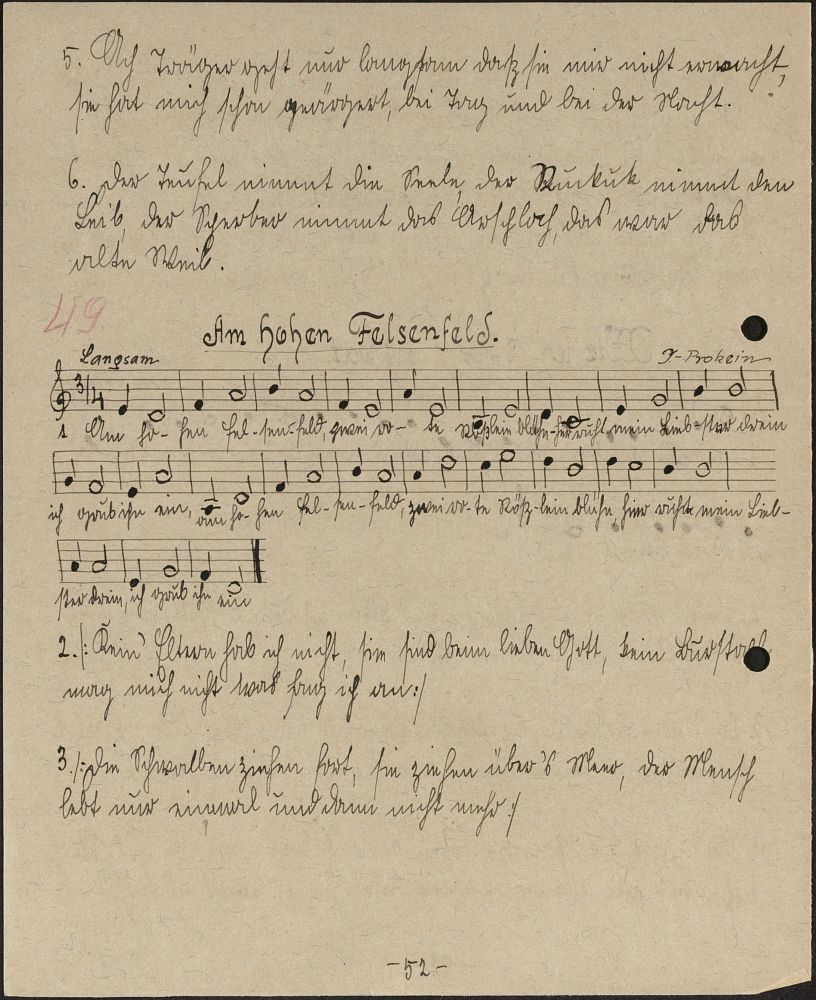 5. Ach Träger geht nur langsam daß sie mir nicht erwacht,
sie hat mich schon geärgert, bei Tag und bei der Nacht.
6. Der Teufel nimmt die Seele, der Kuckuk nimmt den
Leib, der Sperber nimmt das Arschloch, das war das
alte Weib.
49
Am hohen Felsenfeld.
Langsam
J. Prokein
3/4
1 Am ho- hen Fel- sen- feld, zwei ro- te Rößlein blühn- hier ruht mein Lieb- ster drein
ich grub ihn ein, am ho- hen Fel- sen- feld, zwei ro- te Rösz- lein blühn, hier ruht mein Lieb-
ster drein, ich grub ihn ein
2. /: Kein' Eltern hab ich nicht, sie sind beim lieben Gott, kein
mag mich nicht was fang ich an :/
3. /: Die Schwalben ziehen fort, sie ziehen über's Meer, der Mensch
lebt nur einmal und dann nicht mehr :/
- 52 -